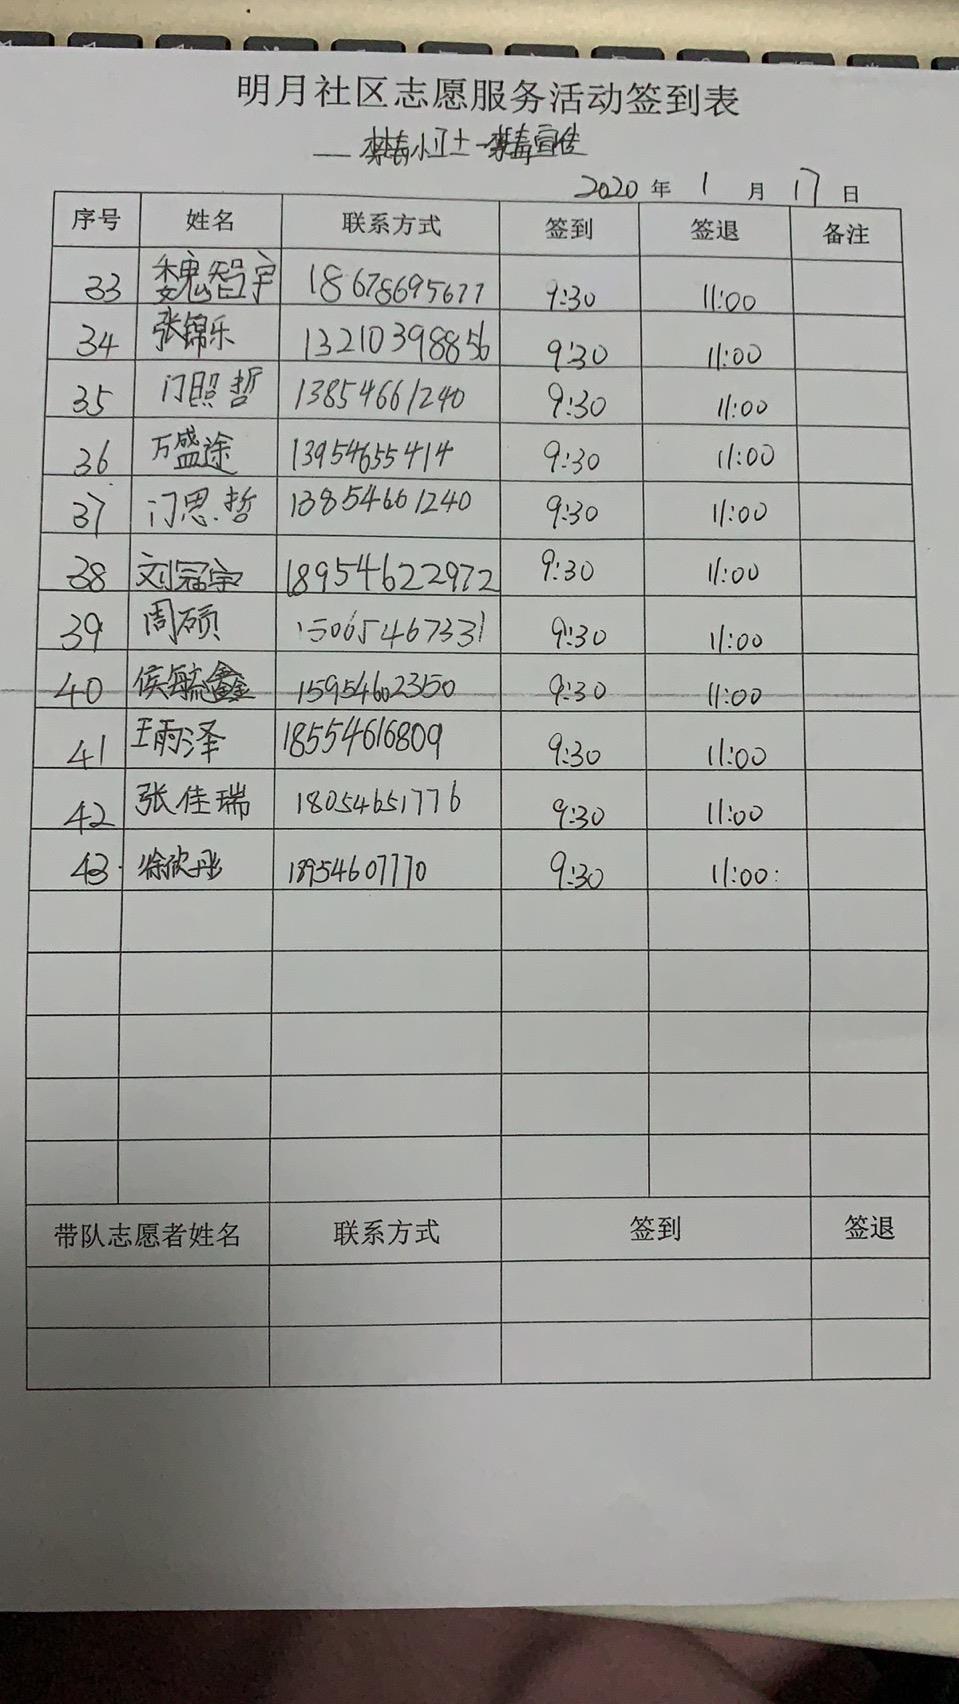 明月社区志愿服务活动签到表
—禁毒小卫士—禁毒宣传
2020年 1月 17日
序号 姓名 联系方式 签到 签退 备注
33 魏智宇 18678695677 9:30 11:00
34 张锦乐 13210398856 9:30 11:00
35 门照哲 13854661240 9:30 11:00
36 万盛途 13954655414 9:30 11:00
37 门思哲 13854661240 9:30 11:00
38 刘冠宇 18954622972 9:30 11:00
39 周硕 15065467331 9:30 11:00
40 侯毓鑫 15954602350 9:30 11:00
41 王雨泽 18554616809 9:30 11:00
42 张佳瑞 18054651776 9:30 11:00
43 徐欣彤 18954607770 9:30 11:00
带队志愿者姓名 联系方式 签到 签退